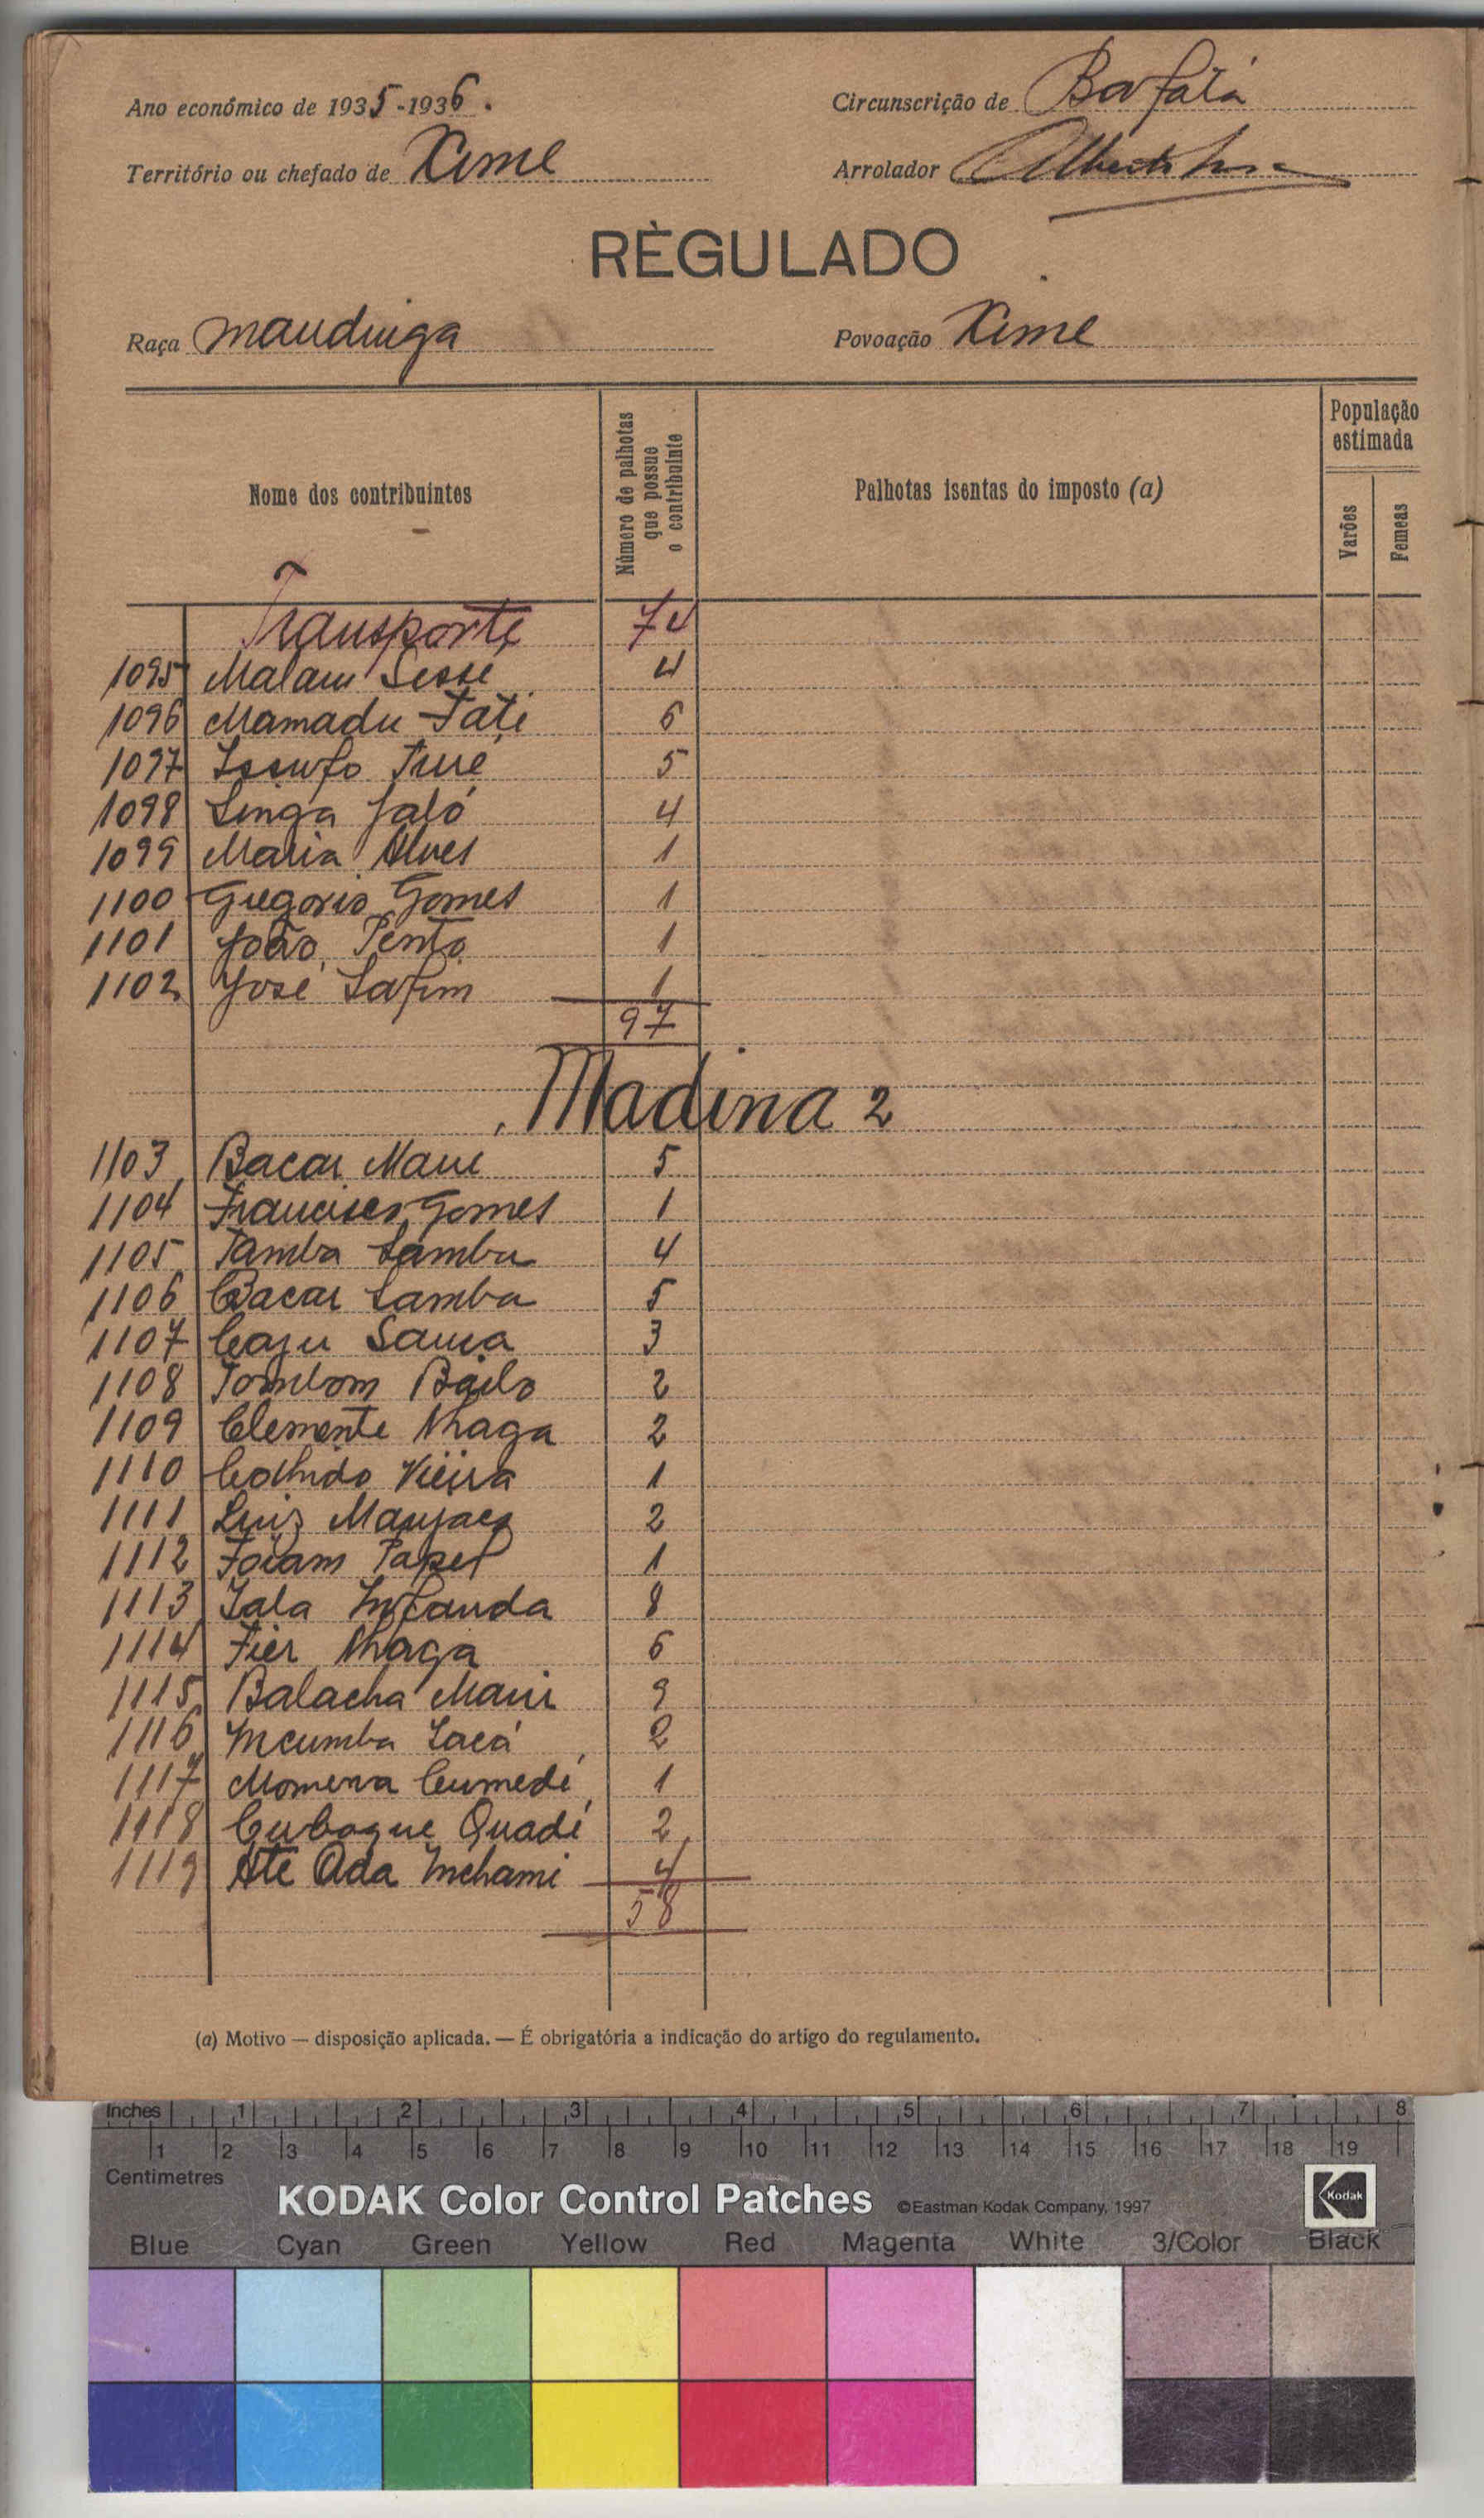 Ano económico de 1935-1936.
Circunscrição de Bafatá
Território ou chefado de Xime
Arrolador
RÈGULADO
Raça mandinga
Povoação Xime
Nome dos contribuintes
Número de palhotas que possue o contribuinte
Palhotas isentas do imposto (a)
População estimada
Varões
Femeas
Transporte 74
1095 Malam Sesse 4
1096 Mamadu Fati 6
1097 Issufo Turé 5
1098 Linga Jaló 4
1099 Maria Alves 1
1100 Gregorio Gomes 1
1101 João Pento 1
1102 José Safim 1
97
Madina 2
1103 Bacar Mané 5
1104 Francisco Gomes 1
1105 Tamba Samba 4
1106 Bacar Samba 5
1107 3
1108 Tombom Bailo 2
1109 Clemente Nhaga 2
1110 Vieira 1
1111 Luiz Manjaco 2
1112 Papel 1
1113 Infanda 8
1114 Nhaga 6
1115 Balacha 9
1116 2
1117 1
1118 Quadé 2
1119 Até Oda Inchami 4
58
(a) Motivo — disposição aplicada. — É obrigatória a indicação do artigo do regulamento.
Inches 1 2 3 4 5 6 7 8
1 2 3 4 5 6 7 8 9 10 11 12 13 14 15 16 17 18 19
Centimetres
KODAK Color Control Patches ©Eastman Kodak Company, 1997 Kodak
Blue Cyan Green Yellow Red Magenta White 3/Color Black